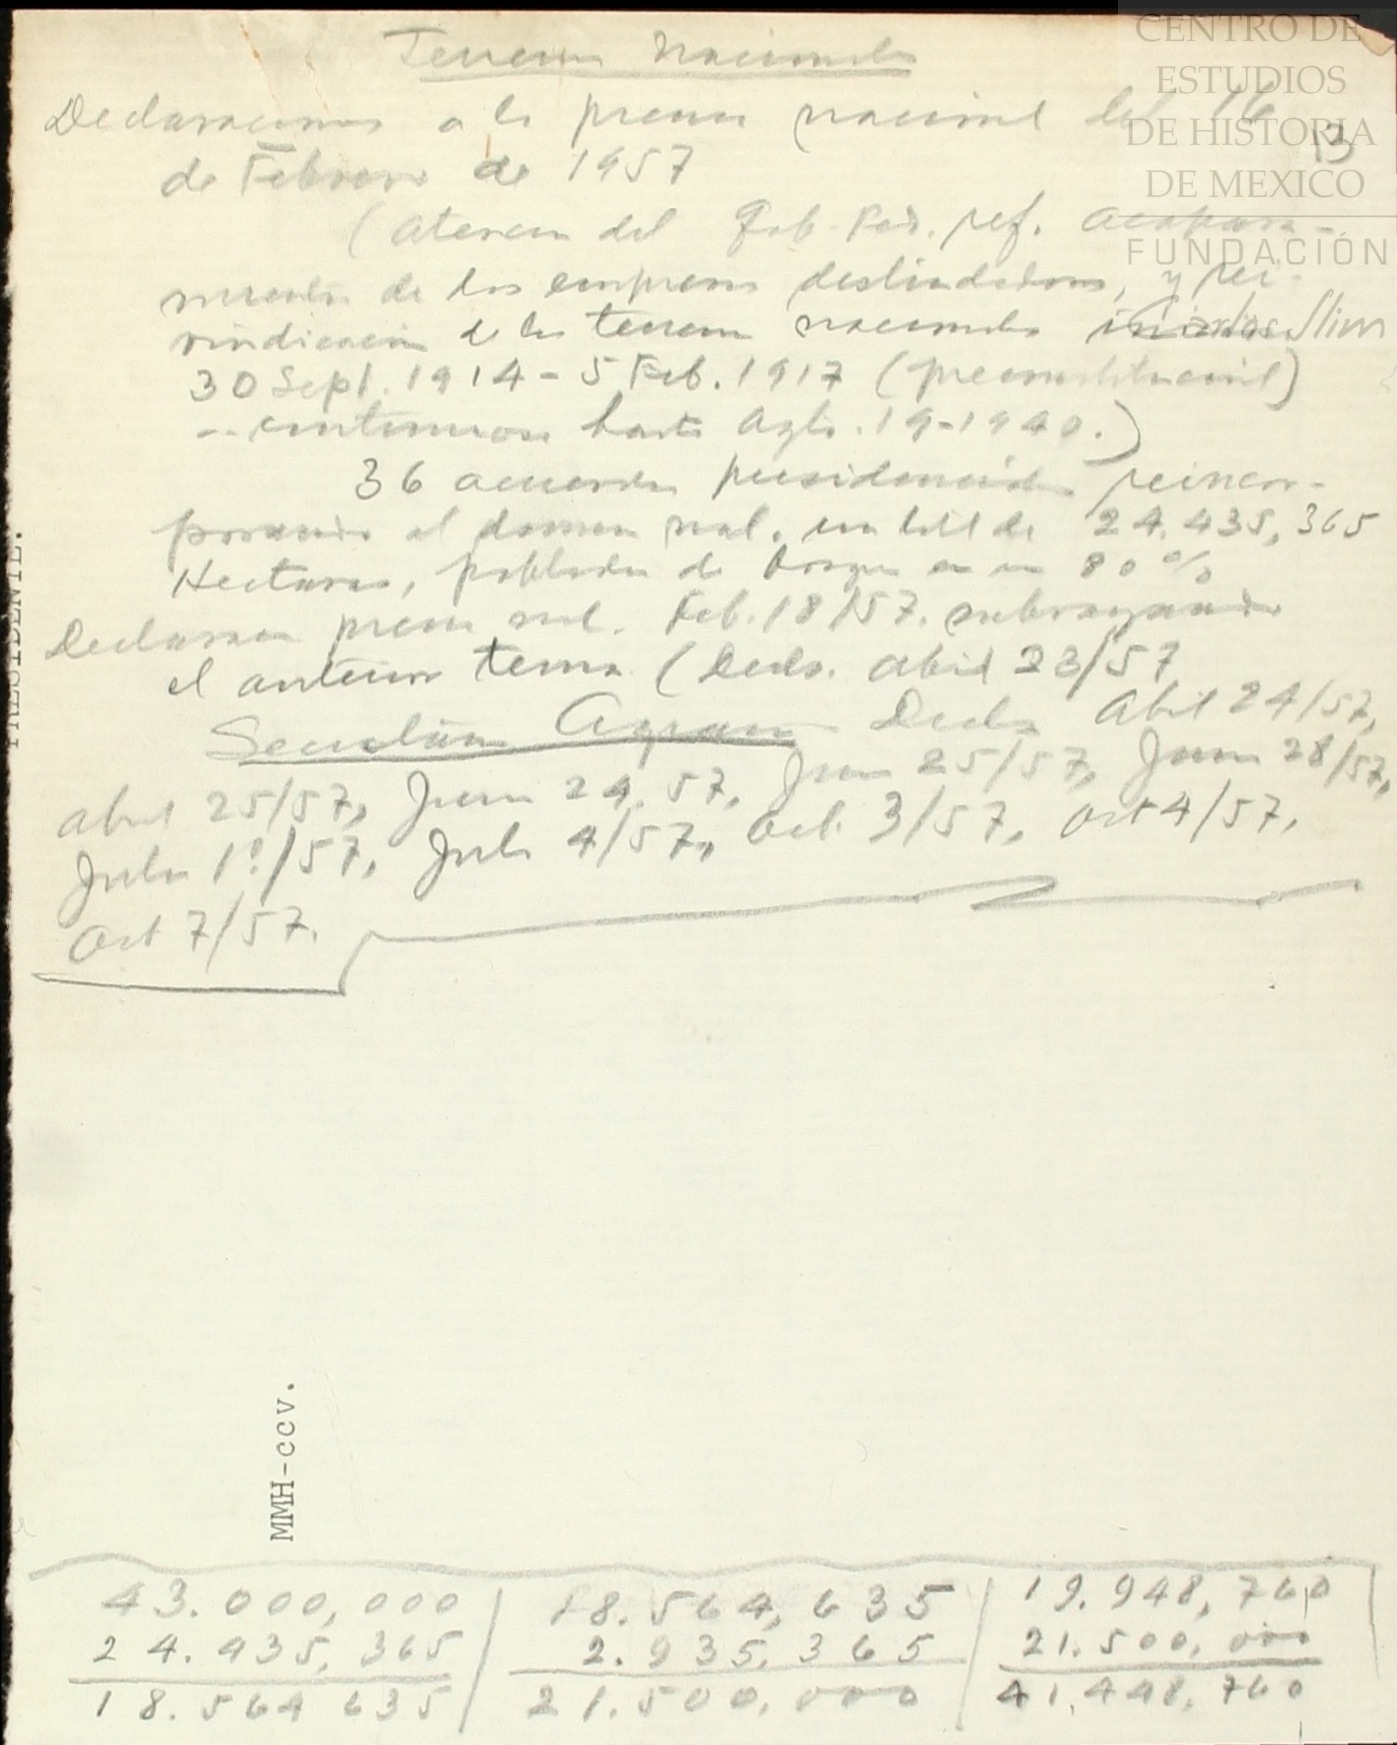 Terrenos Nacionales
CENTRO DE
ESTUDIOS
DE HISTORIA
DE MEXICO
FUNDACIÓN
Carlos Slim
13
Declaraciones a la prensa nacional del 16
de Febrero de 1957
del Gob. ref. acapara-
miento de las empresas deslindadoras, y rei-
vindicación de los terrenos nacionales
30 Sept. 1914 - 5 Feb. 1917 (preconstitucional)
-- hasta Agto. 19-1940.)
36 acuerdos presidenciales reincor-
porando al nal. un total de 24.435,365
Hectáreas, pobladas de bosque en un 80%
prensa nal. Feb. 18/57. subrayando
el anterior tema (Decls. abril 23/57
Agrario Decls Abril 24/57,
abril 25/57, Junio 24.57, Junio 25/57, Junio 28/57,
Julio 1º/57, Julio 4/57, Oct. 3/57, Oct 4/57,
Oct 7/57.
PRESIDENTE.
MMH-ccv.
43.000,000
24.435,365
18.564 635
18.564,635
2.935,365
21.500,000
19.948,760
21.500,000
41,448,760